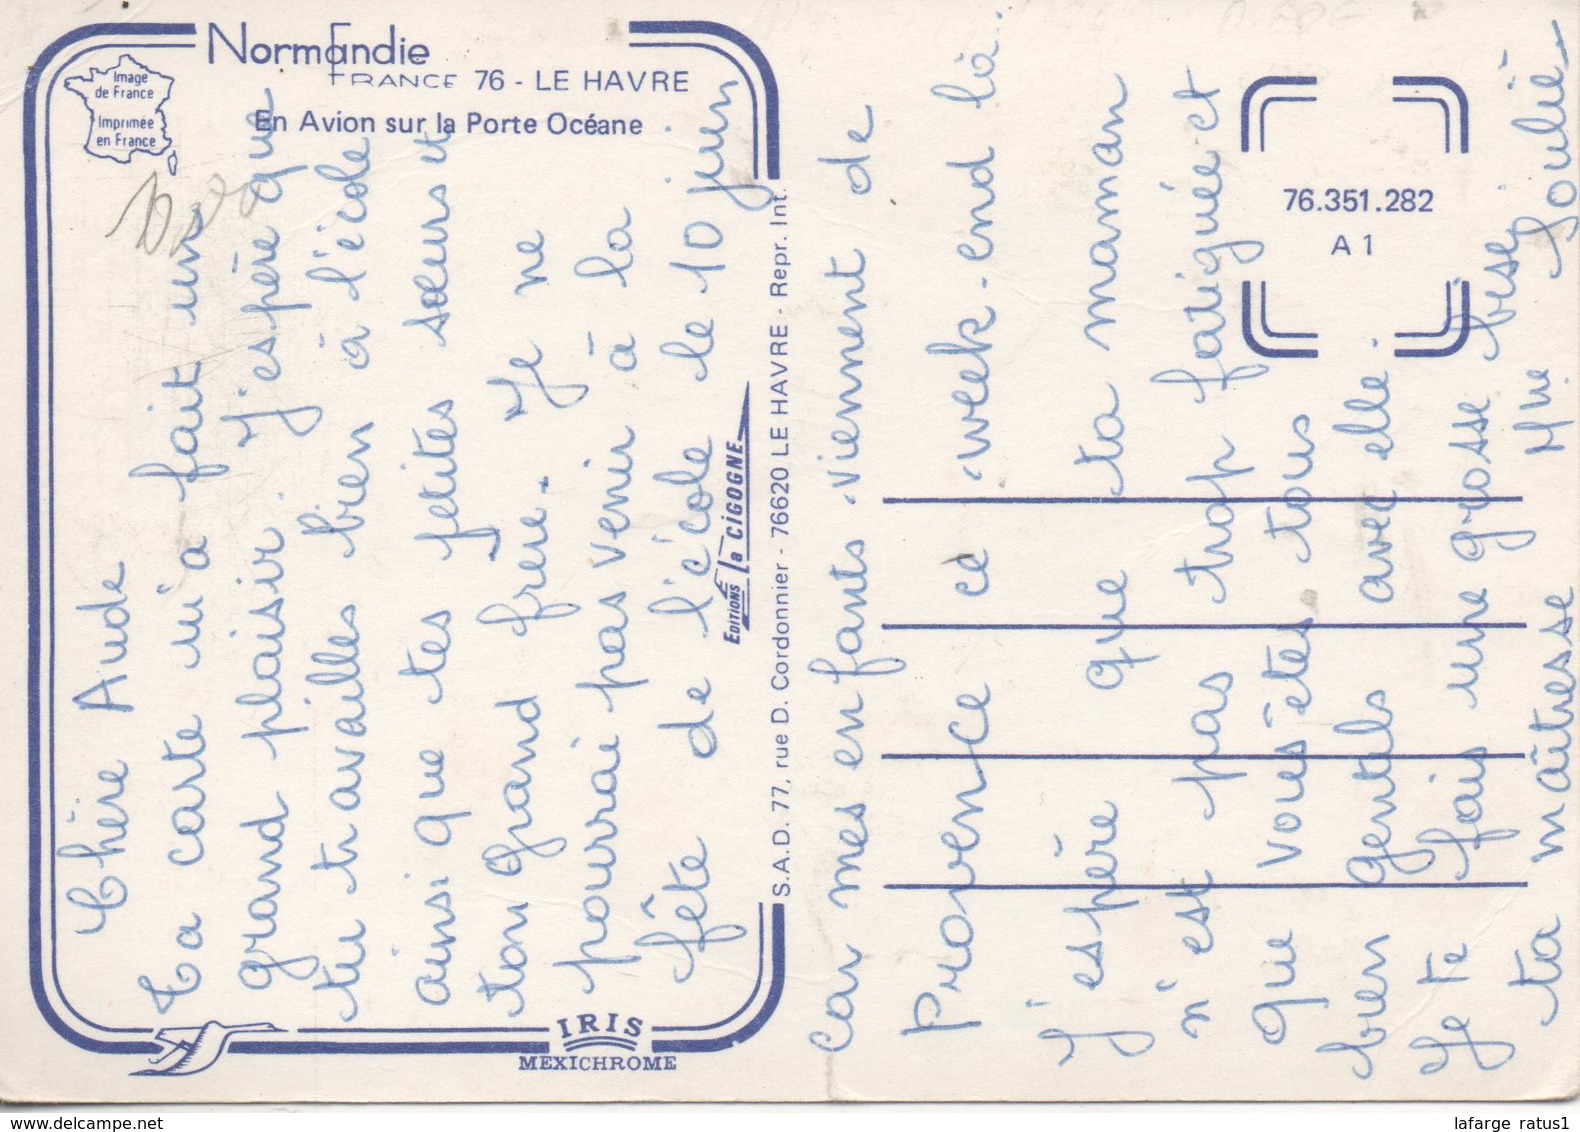 Normandie
FRANCE 76 - LE HAVRE
En Avion sur la Porte Océane
Image
de France
Imprimée
en France
Chère Aude
Ta carte m'a fait un
grand plaisir. J'espère que
tu travailles bien à l'école
ainsi que tes petites sœurs et
ton grand frère. Je ne
pourrai pas venir à la
fête de l'école le 10 juin
EDITIONS la CIGOGNE
S.A.D. 77, rue D. Cordonnier - 76620 LE HAVRE - Repr. Int.
IRIS
MEXICHROME
76.351.282
A 1
car mes enfants viennent de
Provence ce week-end là.
J'espère que ta maman
n'est pas trop fatiguée et
que vous êtes tous
bien gentils avec elle.
Je te fais une grosse bise
ta maîtresse Mme Soulié
lafarge ratus1